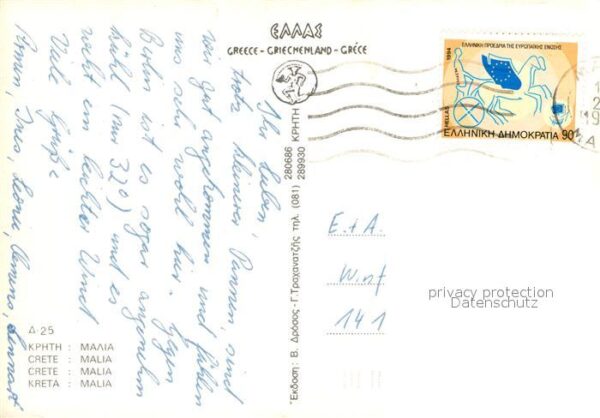 ΕΛΛΑΣ
GREECE - GRIECHENLAND - GRÈCE
Ihr Lieben,
trotz kleiner Pannen, sind
wir gut angekommen und fühlen
uns sehr wohl hier. Gegen
Berlin ist es sogar angenehm
kühl (nur 32°) und es
weht ein leichter Wind
Viele Grüße
Leonie
Lennart
Δ-25
ΚΡΗΤΗ : ΜΑΛΙΑ
CRETE : MALIA
CRETE : MALIA
KRETA : MALIA
Έκδοση: Β. Δρόσος - Γ. Τραχανατζής τηλ. (081) 280686 289930 ΚΡΗΤΗ
ΕΛΛΗΝΙΚΗ ΠΡΟΕΔΡΙΑ ΤΗΣ ΕΥΡΩΠΑΪΚΗΣ ΕΝΩΣΗΣ
1994
HELLAS
ΕΛΛΗΝΙΚΗ ΔΗΜΟΚΡΑΤΙΑ 90
E. + A.
141
privacy protection
Datenschutz